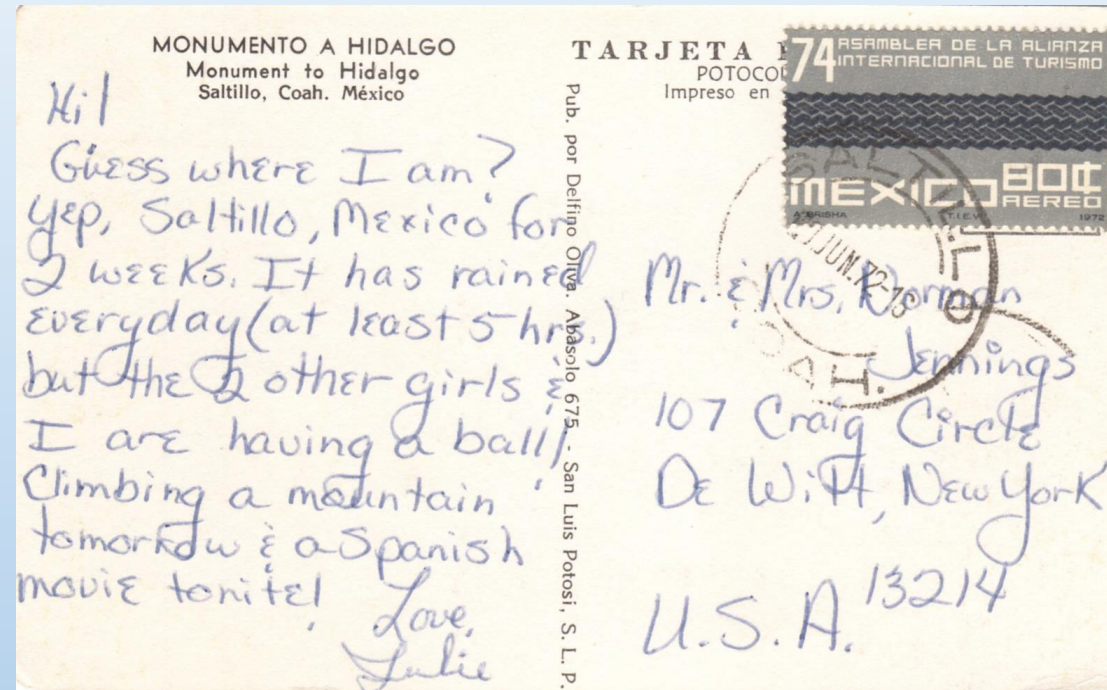 MONUMENTO A HIDALGO
Monument to Hidalgo
Saltillo, Coah. México
Hi!
Guess where I am?
Yep, Saltillo, Mexico for
2 weeks. It has rained
everyday (at least 5 hrs.)
but the 2 other girls &
I are having a ball!
Climbing a mountain
tomorrow & a Spanish
movie tonite!
Love,
Julie
Pub. por Delfino Oliva. Abasolo 675 - San Luis Potosí, S. L. P.
TARJETA
POTOCO
Impreso en
74 ASAMBLEA DE LA ALIANZA
INTERNACIONAL DE TURISMO
MEXICO 80¢
AEREO
T.I.E.V. 1972
SALTILLO
JUN.72-16
COAH.
Mr. & Mrs. Norman
Jennings
107 Craig Circle
De Witt, New York
13214
U.S.A.